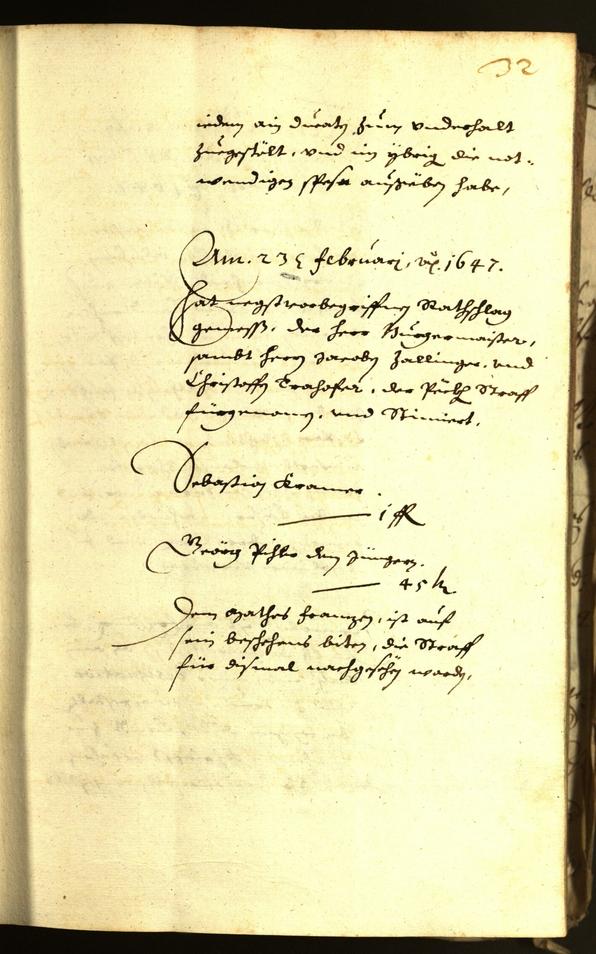 32
iedem ain ducaten zum vnderhalt
zuegestölt, vnd im ybrig die not-
wendigen spesa ausgeben habe,
Am. 23 februarj, 1647.
Hat negstvorbegriffnen Rathschlag
gemeß, der herr Burgermaister,
sambt herrn Jacoben Zallinger, vnd
Christoffen Trahofer, der Straff
fürgenomen, vnd Stimiert,
Sebastian Kramer.
1 fl
Geörg Pichler dem Jüngern.
45 kr
Dem Mathes Franzen, ist auf
sein beschehens biten, die Straff
für dismal nachgesehen worden,